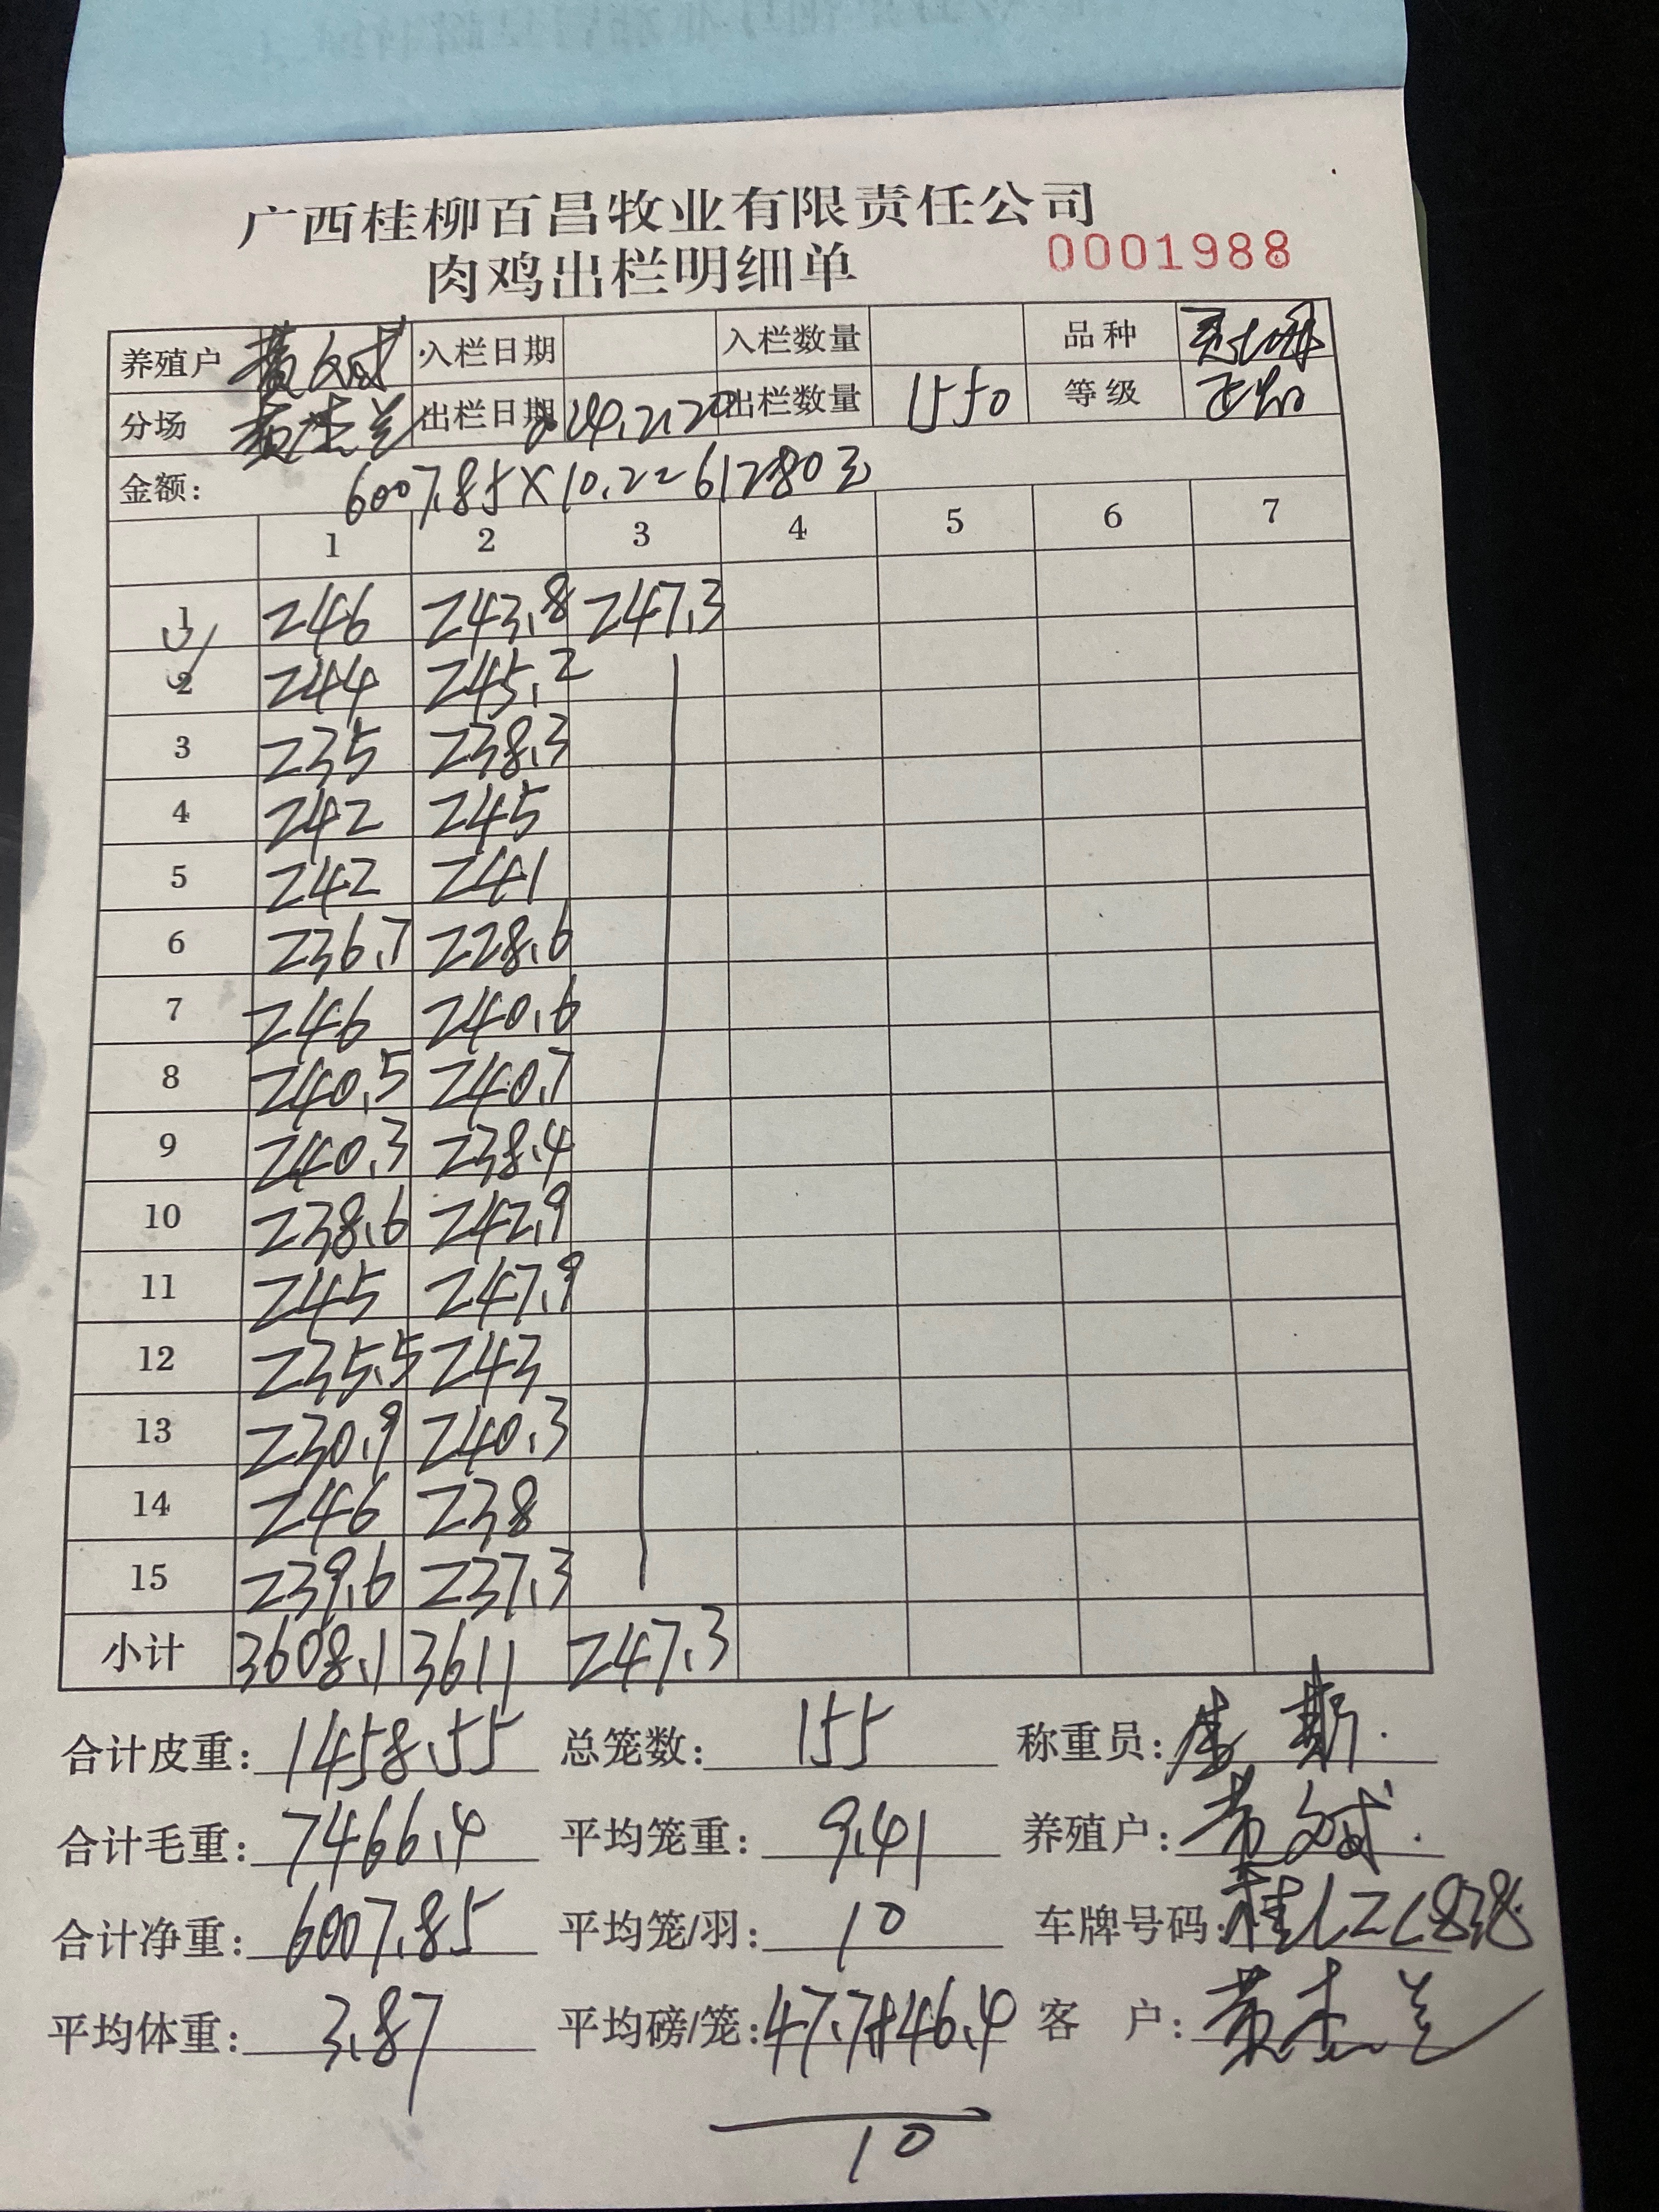 广西桂柳百昌牧业有限责任公司
肉鸡出栏明细单 0001988
养殖户 黄 入栏日期 入栏数量 品种
分场 黄杰兰 出栏日期 2024.2.20 出栏数量 1550 等级
金额: 6007.85×10.2=61280元
1 2 3 4 5 6 7
1 246 243.8 247.3
2 244 245.2
3 235 238.3
4 242 245
5 242 241
6 236.7 228.6
7 246 240.6
8 240.5 240.7
9 240.3 238.4
10 238.6 242.9
11 245 247.9
12 235.5 243
13 230.9 240.3
14 246 238
15 239.6 237.3
小计 3608.1 3611 247.3
合计皮重: 1458.55 总笼数: 155 称重员:
合计毛重: 7466.4 平均笼重: 9.41 养殖户: 黄
合计净重: 6007.85 平均笼/羽: 10 车牌号码:
平均体重: 3.87 平均磅/笼: 47.7+46.4 客 户: 黄杰兰
10